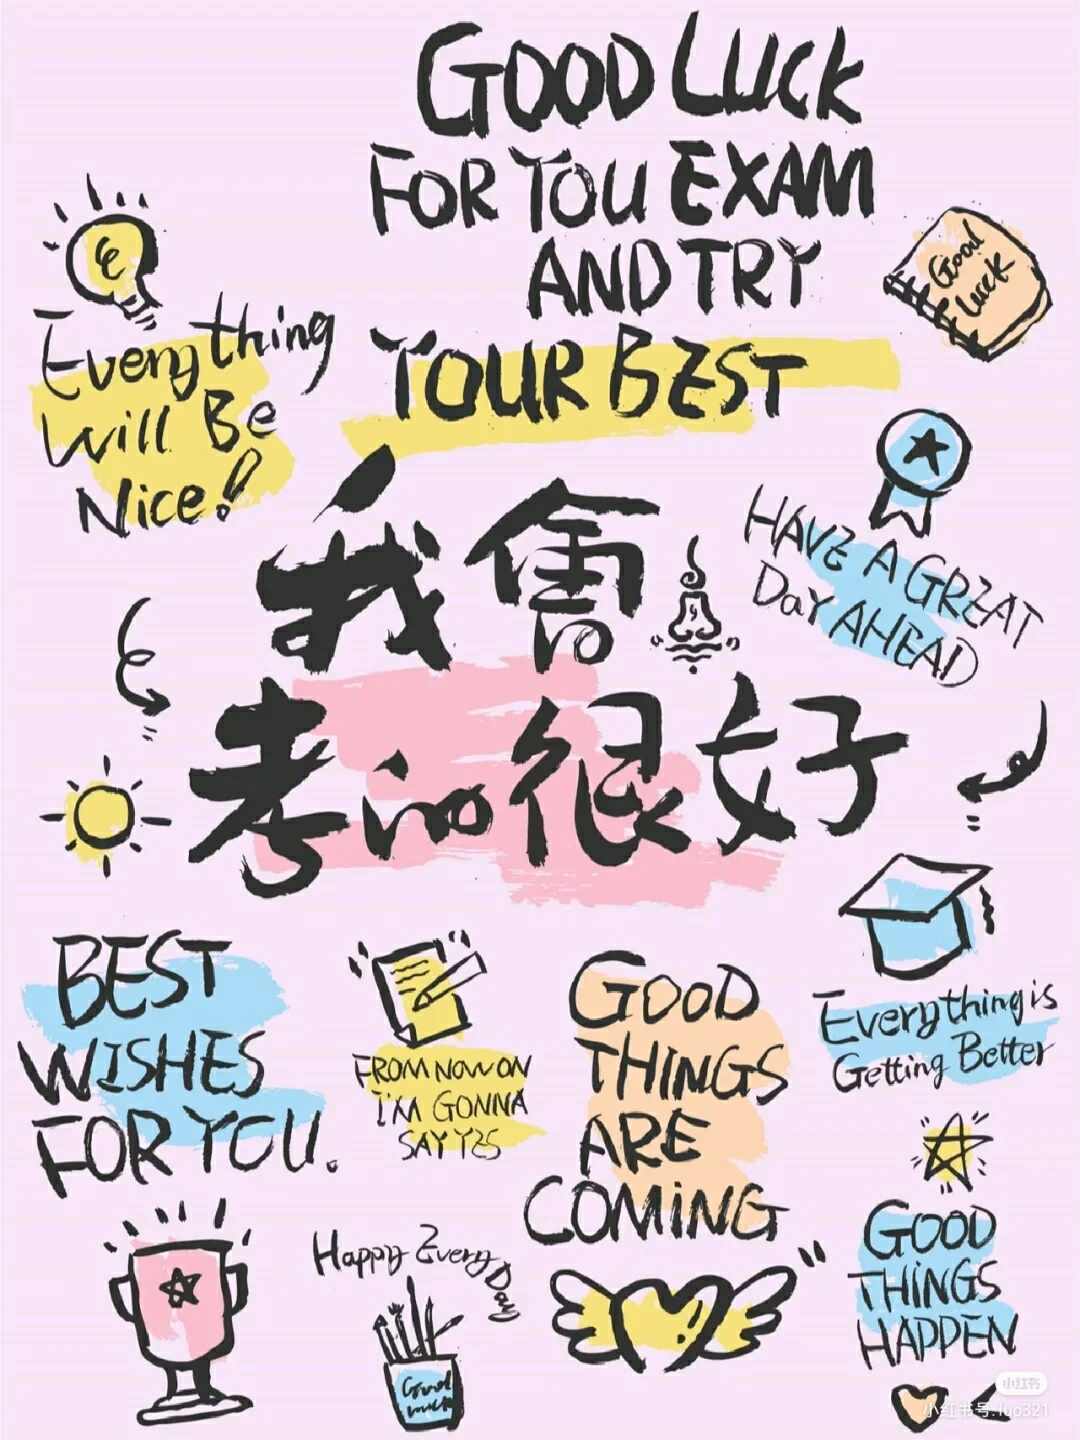 GOOD LUCK
FOR YOU EXAM
AND TRY
YOUR BEST
Good
Luck
Everything
Will Be
Nice!
HAVE A GREAT
Day AHEAD
我會
考的很好
BEST
WISHES
FOR YOU.
FROM NOW ON
I'M GONNA
SAY YES
GOOD
THINGS
ARE
COMING
Everything is
Getting Better
GOOD
THINGS
HAPPEN
Happy Every Day
Good
luck
小红书
小红书号:luo321